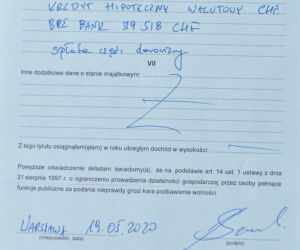 KREDYT HIPOTECZNY WALUTOWY CHF
BRE BANK 519 518 CHF
spłata części darowizny
VII
Inne dodatkowe dane o stanie majątkowym:
Z tego tytułu osiągnąłem(ęłam) w roku ubiegłym dochód w wysokości:
Powyższe oświadczenie składam świadomy(a), że na podstawie art. 14 ust. 1 ustawy z dnia
21 sierpnia 1997 r. o ograniczeniu prowadzenia działalności gospodarczej przez osoby pełniące
funkcje publiczne za podanie nieprawdy grozi kara pozbawienia wolności.
WARSZAWA 19.05.2020
(miejscowość, data)
(podpis)